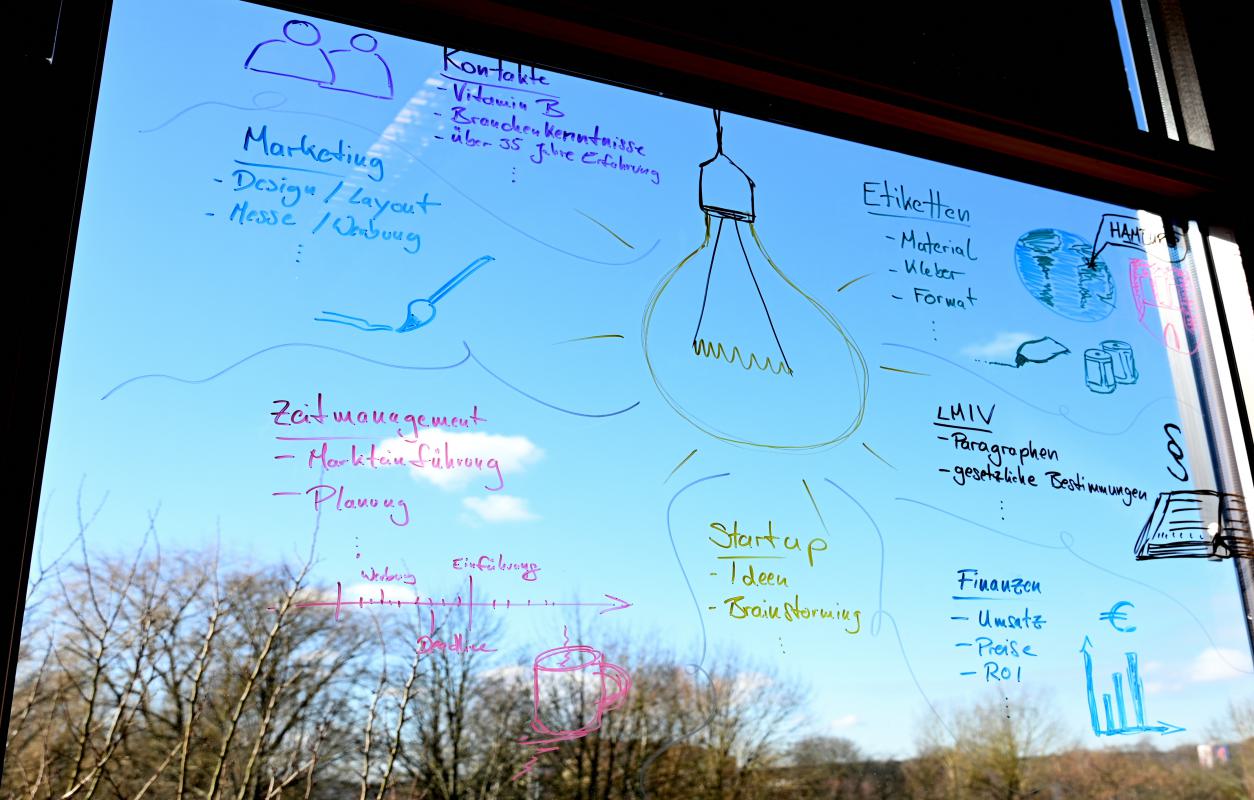 Kontakte
- Vitamin B
- Branchenkenntnisse
- über 35 Jahre Erfahrung
Marketing
- Design / Layout
- Messe / Werbung
Etiketten
- Material
- Kleber
- Format
HAMBURG
Zeitmanagement
- Markteinführung
- Planung
Werbung
Einführung
Deadline
LMIV
- Paragraphen
- gesetzliche Bestimmungen
§
Startup
- Ideen
- Brainstorming
Finanzen
- Umsatz
- Preise
- ROI
€